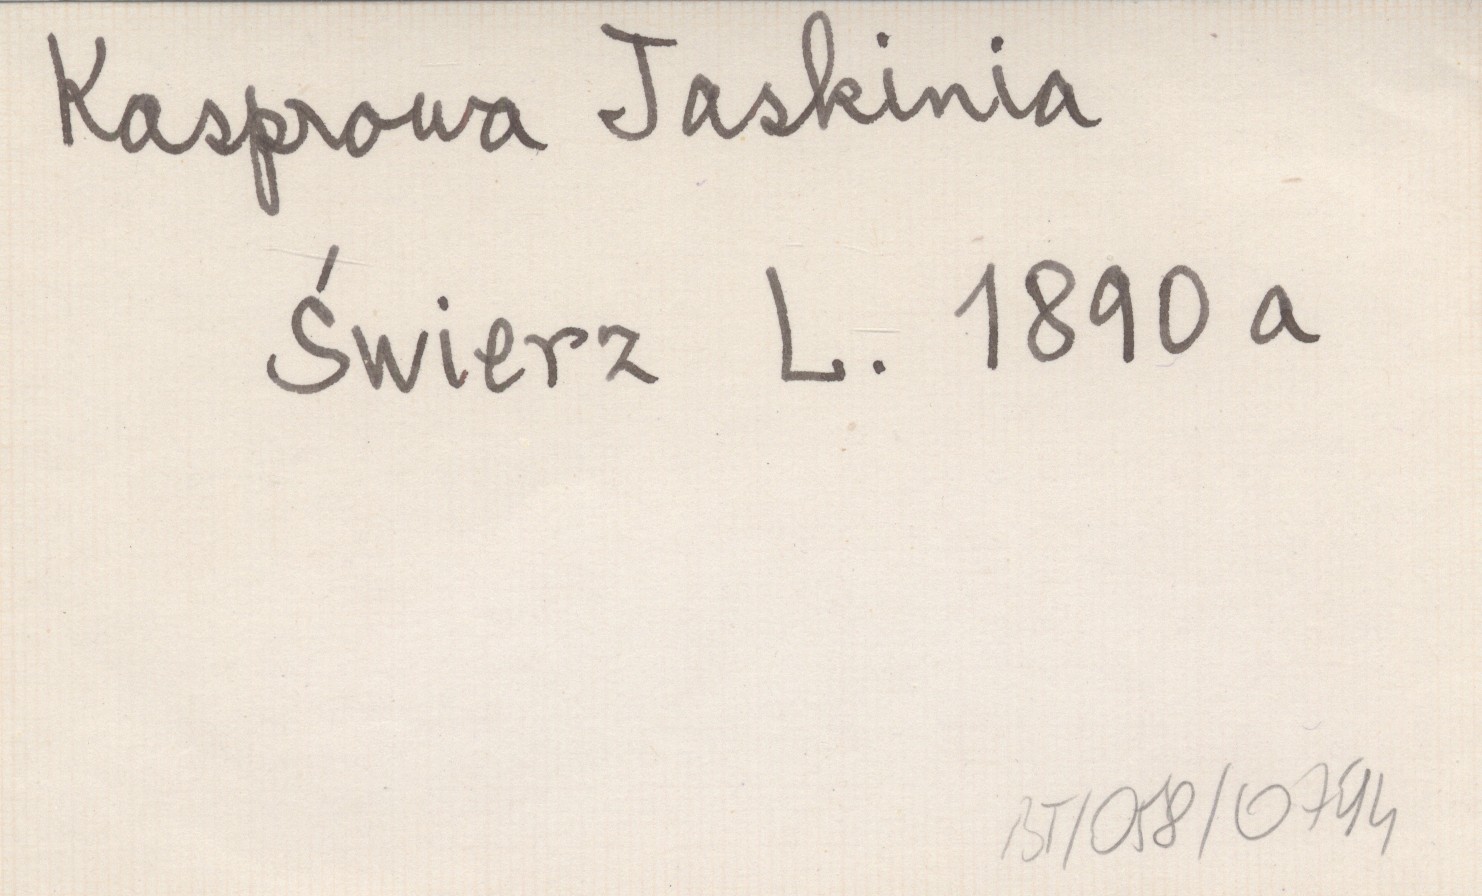 Kasprowa Jaskinia
Świerz L. 1890 a
BT/058/0794